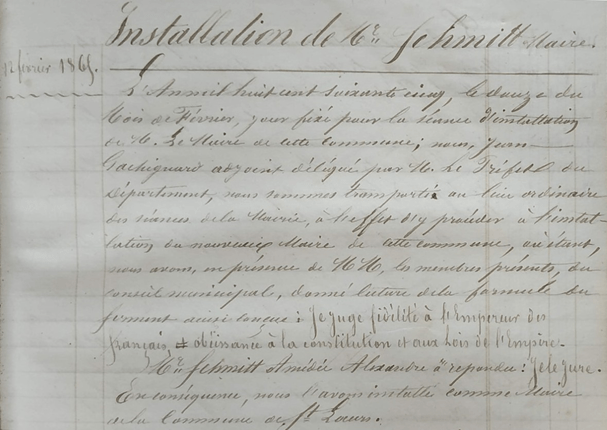 Installation de Mr. Schmitt Maire.
12 février 1865.
L'An mil huit cent soixante cinq, le douze du
Mois de Février, jour fixé pour la séance d'installation
de M. Le Maire de cette commune; nous, Jean
adjoint délégué par M. Le Préfet du
Département, nous sommes transporté au lieu ordinaire
des séances de la Mairie, à l'effet d'y procéder à l'instal-
lation du nouveau Maire de cette commune, où étant,
nous avons, en présence de MM. les membres présents, du
conseil municipal, donné lecture de la formule du
serment ainsi conçue: Je juge fidélité à l'Empereur des
français, et obéissance à la constitution et aux Lois de l'Empire.
Mr. Schmitt Amédée Alexandre a répondu: Je le jure.
En conséquence, nous l'avons installé comme Maire
de la Commune de St.